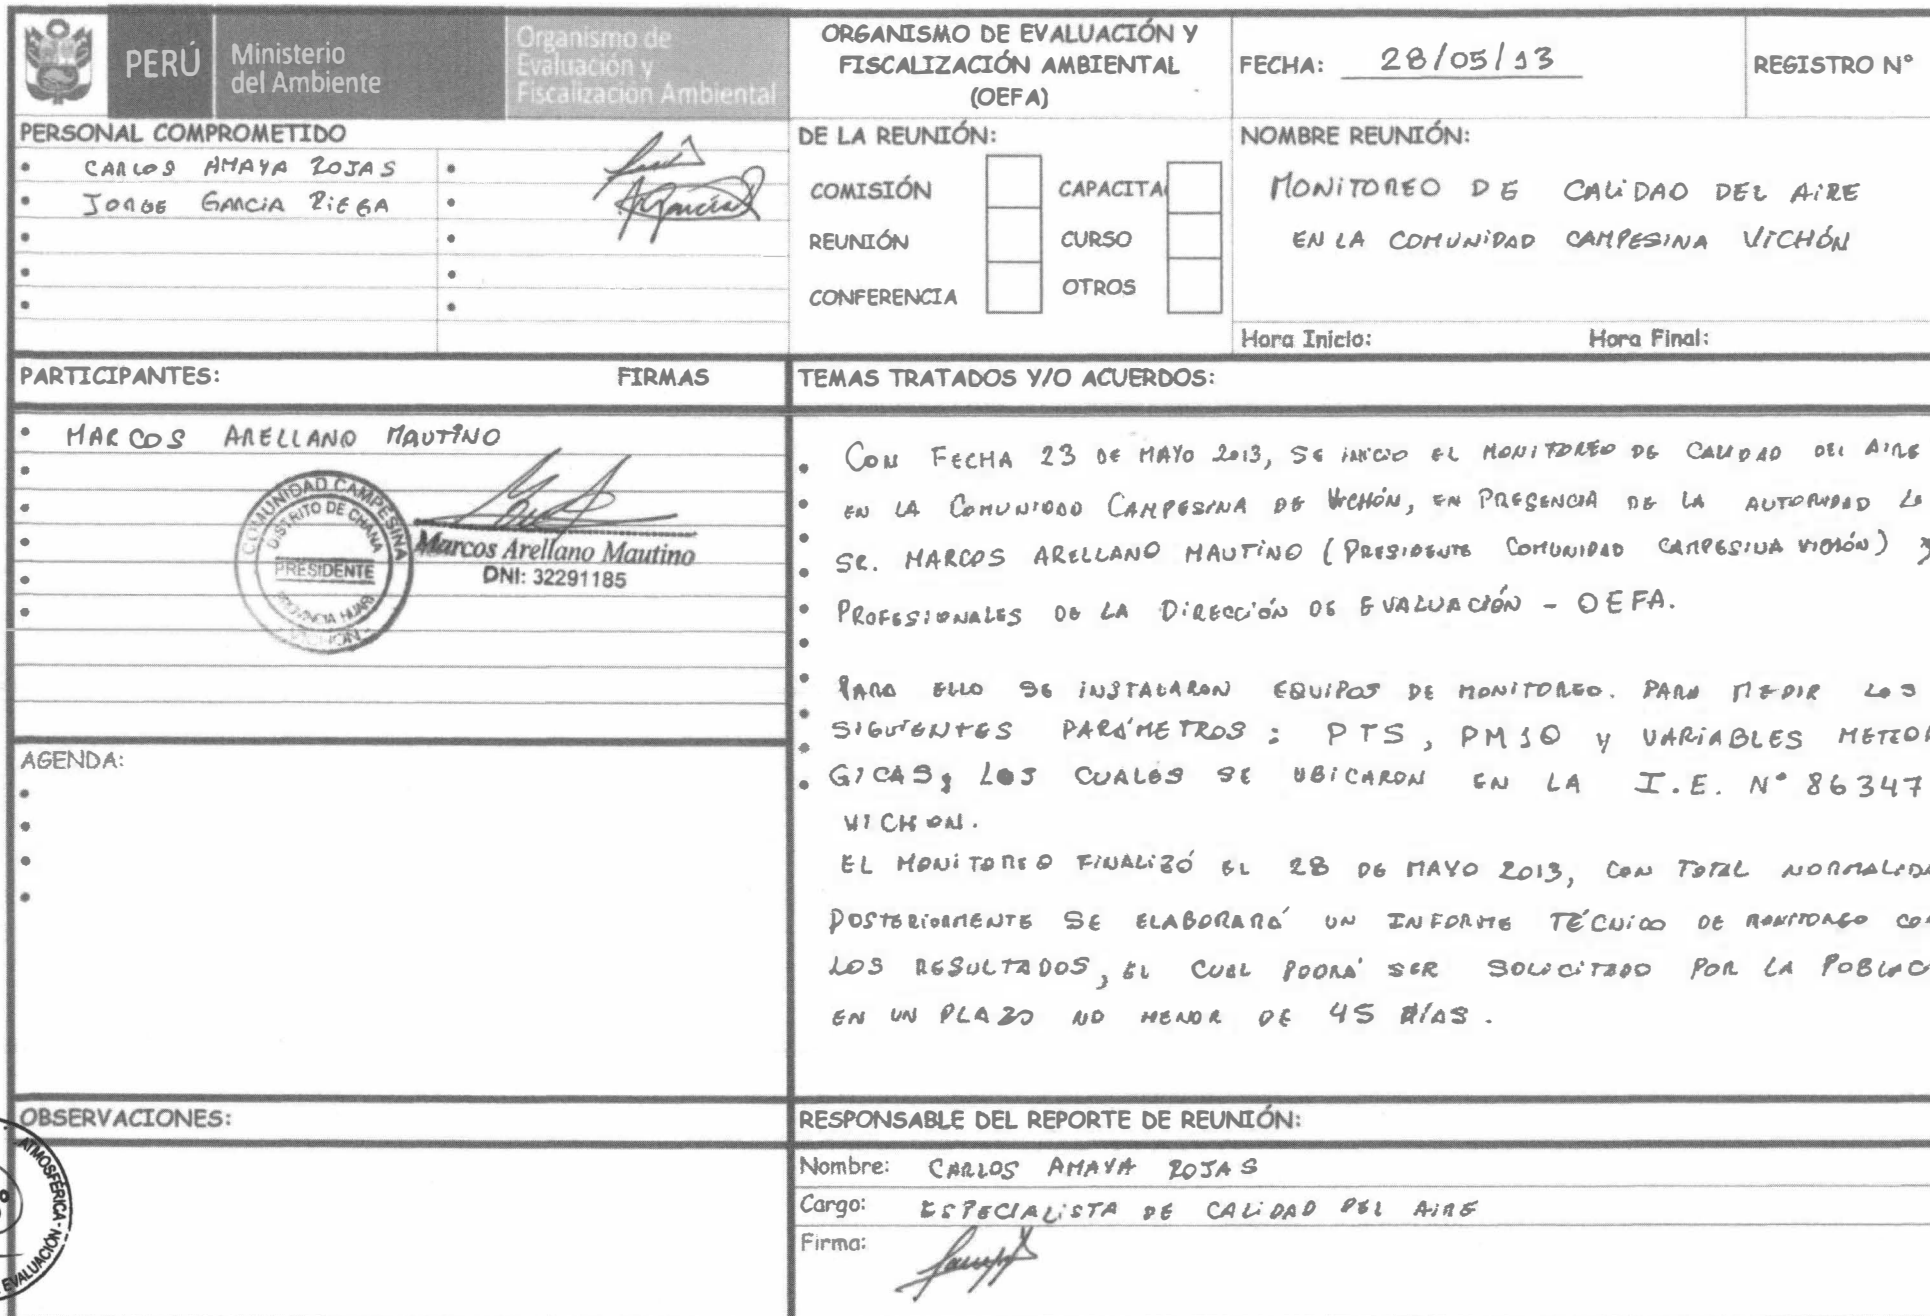 PERÚ
Ministerio
del Ambiente
Organismo de
Evaluación y
Fiscalización Ambiental
ORGANISMO DE EVALUACIÓN Y
FISCALIZACIÓN AMBIENTAL
(OEFA)
FECHA: 28/05/13
REGISTRO N°
PERSONAL COMPROMETIDO
CARLOS AMAYA ROJAS
JORGE GARCIA RIEGA
DE LA REUNIÓN:
COMISIÓN
CAPACITA
REUNIÓN
CURSO
CONFERENCIA
OTROS
NOMBRE REUNIÓN:
MONITOREO DE CALIDAD DEL AIRE
EN LA COMUNIDAD CAMPESINA VICHÓN
Hora Inicio: Hora Final:
PARTICIPANTES: FIRMAS
MARCOS ARELLANO MAUTINO
COMUNIDAD CAMPESINA
DISTRITO DE CHANA
PRESIDENTE
PROVINCIA HUARI
VICHON
Marcos Arellano Mautino
DNI: 32291185
TEMAS TRATADOS Y/O ACUERDOS:
CON FECHA 23 DE MAYO 2013, SE INICIO EL MONITOREO DE CALIDAD DEL AIRE
EN LA COMUNIDAD CAMPESINA DE VICHÓN, EN PRESENCIA DE LA AUTORIDAD LO
SR. MARCOS ARELLANO MAUTINO (PRESIDENTE COMUNIDAD CAMPESINA VICHÓN) Y
PROFESIONALES DE LA DIRECCIÓN DE EVALUACIÓN - OEFA.
PARA ELLO SE INSTALARON EQUIPOS DE MONITOREO. PARA MEDIR LOS
SIGUIENTES PARÁMETROS: PTS, PM10 Y VARIABLES METEOR
GICAS, LOS CUALES SE UBICARON EN LA I.E. N° 86347
VICHON.
EL MONITOREO FINALIZÓ EL 28 DE MAYO 2013, CON TOTAL NORMALIDA
POSTERIORMENTE SE ELABORARÁ UN INFORME TÉCNICO DE MONITOREO CON
LOS RESULTADOS, EL CUAL PODRÁ SER SOLICITADO POR LA POBLAC
EN UN PLAZO NO MENOR DE 45 DÍAS.
AGENDA:
OBSERVACIONES:
ATMOSFÉRICA -
EVALUACIÓN
RESPONSABLE DEL REPORTE DE REUNIÓN:
Nombre: CARLOS AMAYA ROJAS
Cargo: ESPECIALISTA DE CALIDAD DEL AIRE
Firma: